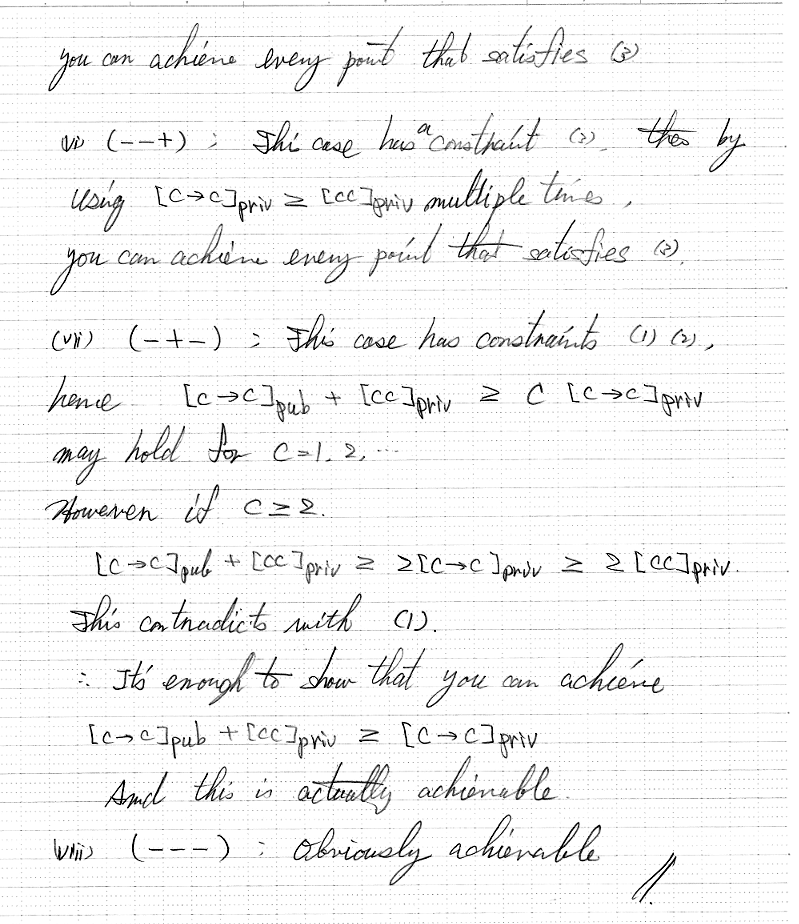 you can achieve every point that satisfies (3)
vi) (--+) : This case has a constraint (3). by
using [c→c]priv ≥ [cc]priv multiple times,
you can achieve every point that satisfies (3).
(vii) (-+-) : This case has constraints (1) (2),
hence [c→c]pub + [cc]priv ≥ C [c→c]priv
may hold for C=1, 2, ...
However if C ≥ 2.
[c→c]pub + [cc]priv ≥ 2[c→c]priv ≥ 2[cc]priv.
This contradicts with (1).
∴ It's enough to show that you can achieve
[c→c]pub + [cc]priv ≥ [c→c]priv
And this is actually achievable.
viii) (---) : Obviously achievable
//.